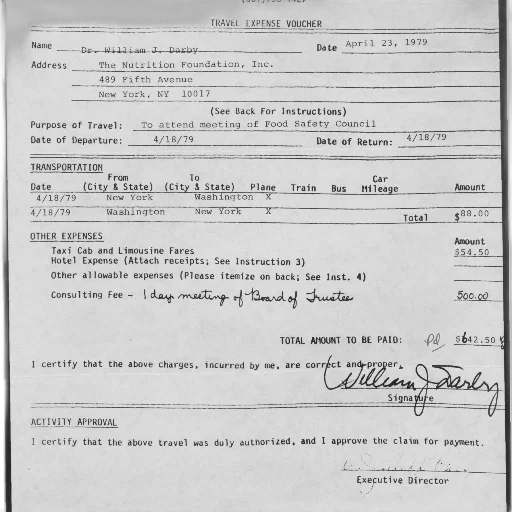 TRAVEL EXPENSE VOUCHER
Name Dr. William J. Darby Date April 23, 1979
Address The Nutrition Foundation, Inc.
489 Fifth Avenue
New York, NY 10017
(See Back For Instructions)
Purpose of Travel: To attend meeting of Food Safety Council
Date of Departure: 4/18/79 Date of Return: 4/18/79
TRANSPORTATION
From To Car
Date (City & State) (City & State) Plane Train Bus Mileage Amount
4/18/79 New York Washington X
4/18/79 Washington New York X Total $88.00
OTHER EXPENSES Amount
Taxi Cab and Limousine Fares $54.50
Hotel Expense (Attach receipts; See Instruction 3)
Other allowable expenses (Please itemize on back; See Inst. 4)
Consulting Fee - 1 day meeting of Board of Trustee 500.00
TOTAL AMOUNT TO BE PAID: Pd $642.50
I certify that the above charges, incurred by me, are correct and proper.
William J Darby
Signature
ACTIVITY APPROVAL
I certify that the above travel was duly authorized, and I approve the claim for payment.
Executive Director